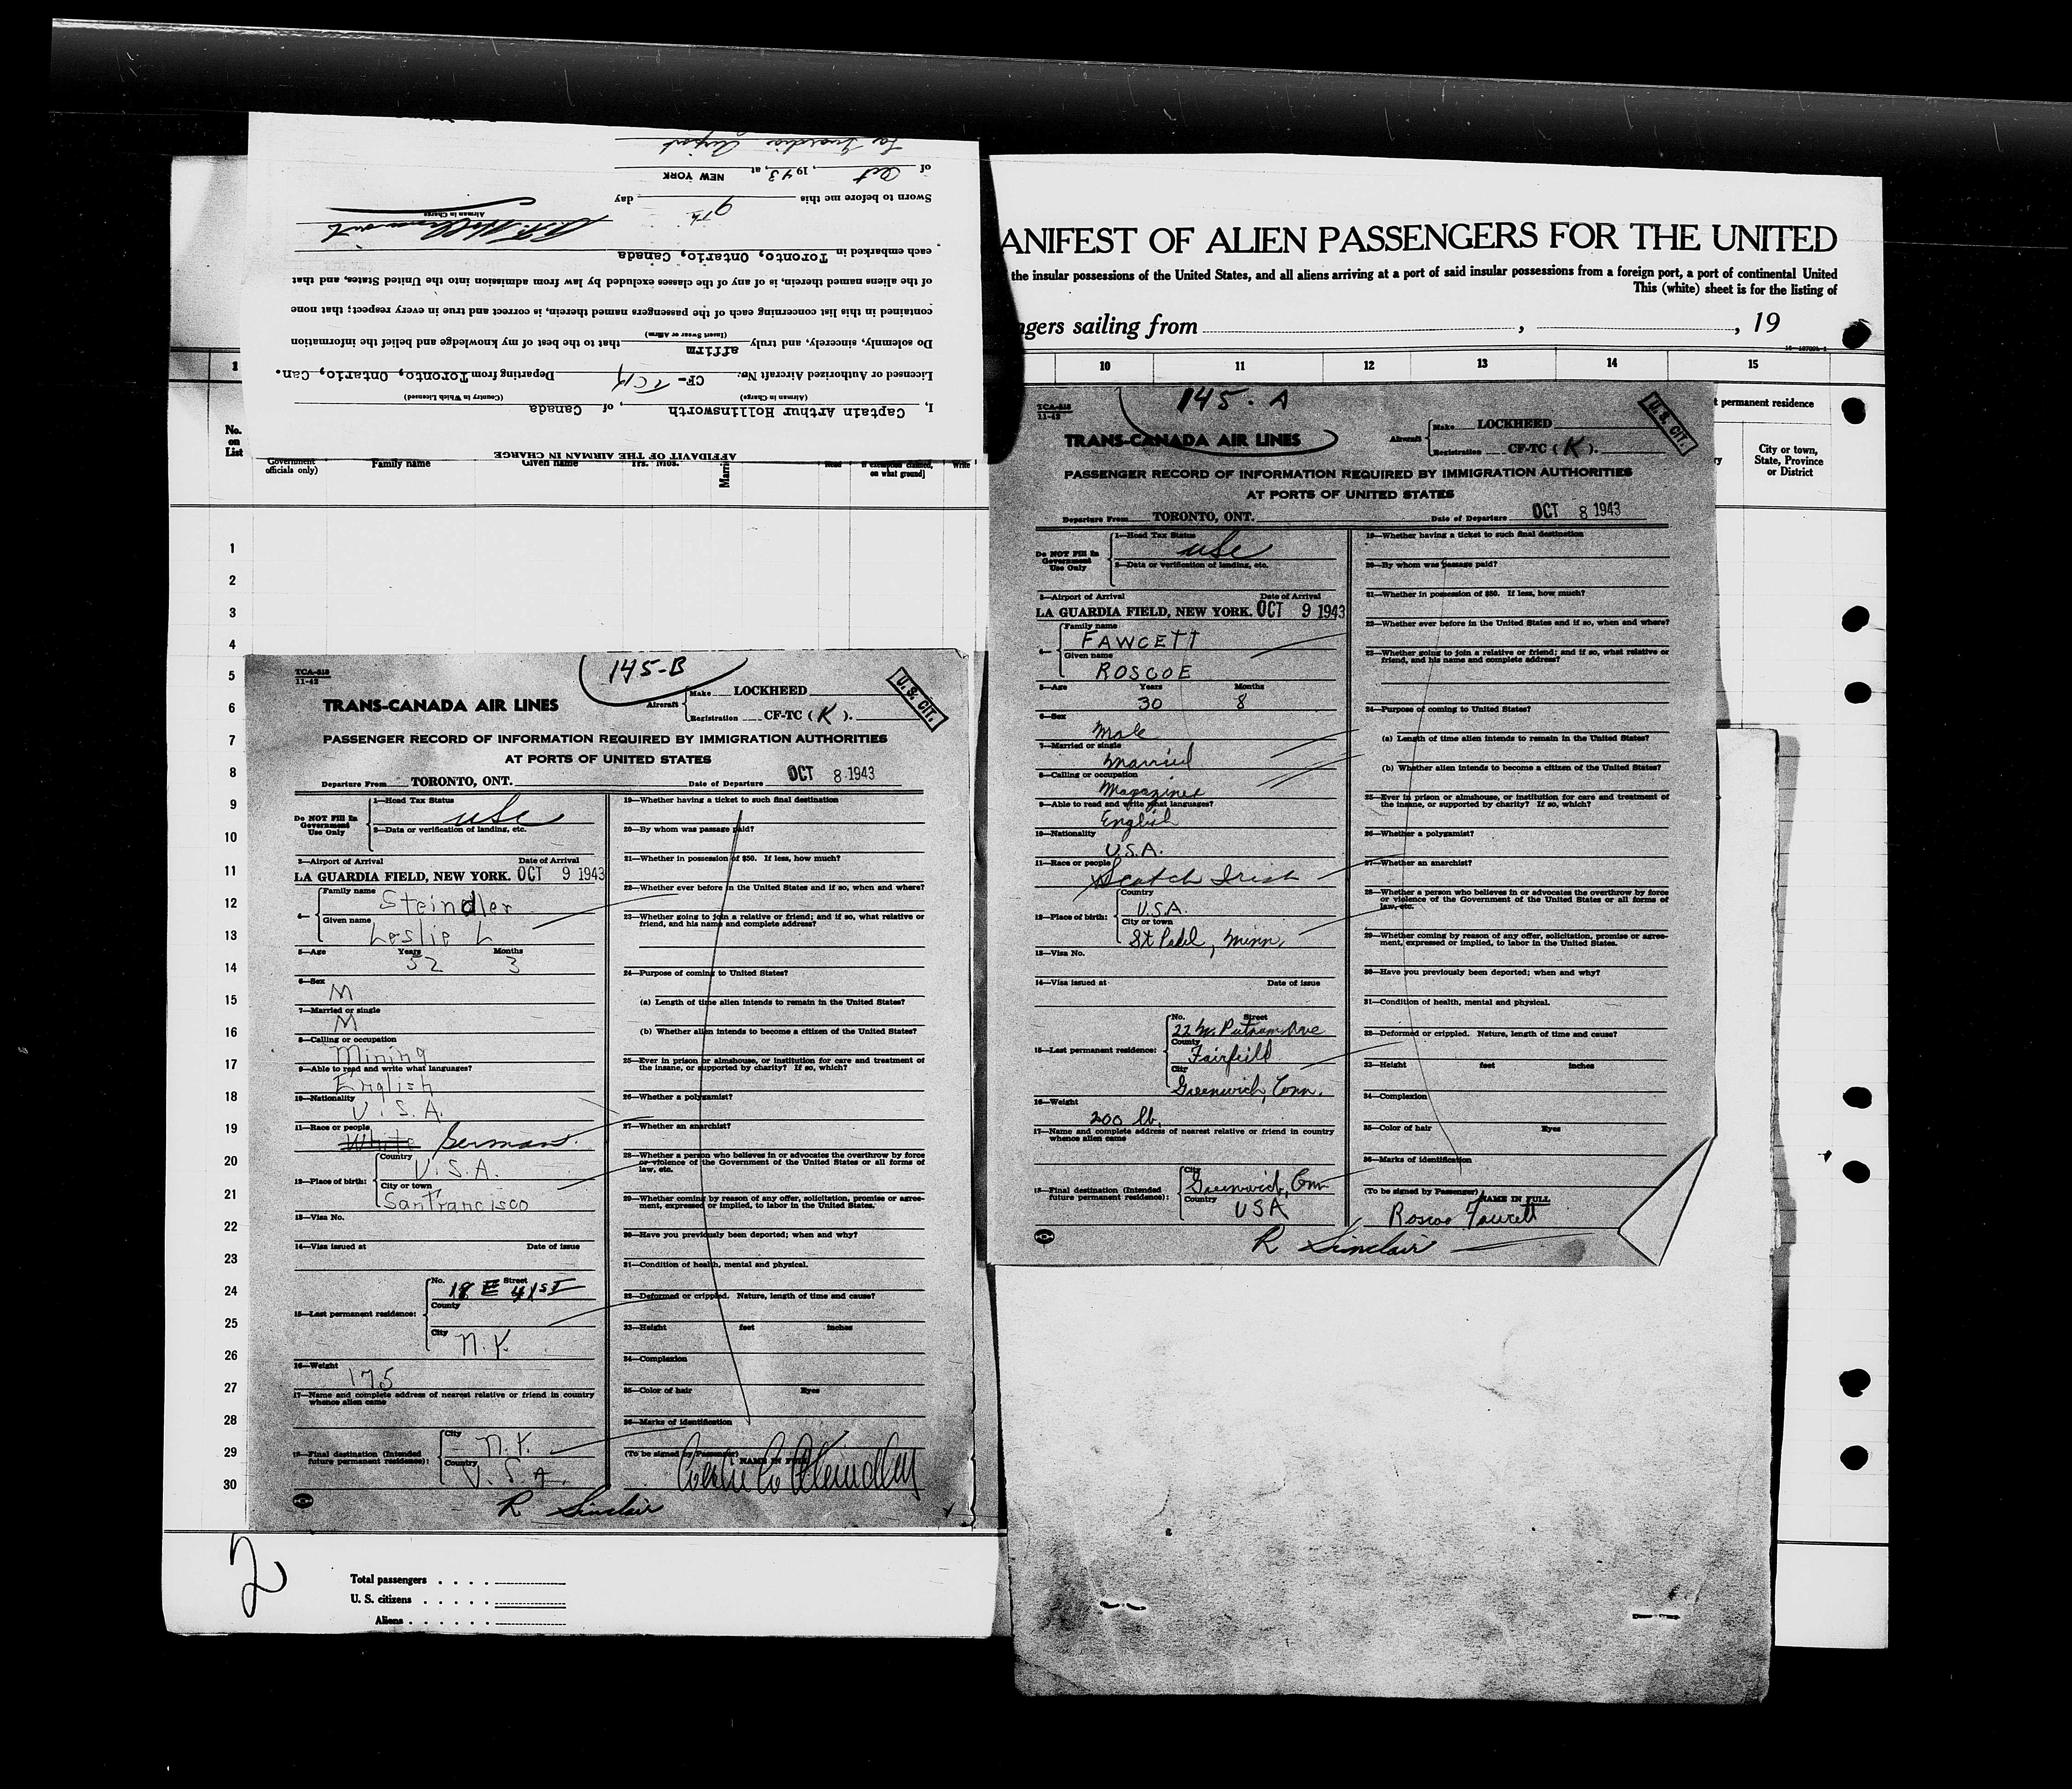 AFFIDAVIT OF THE AIRMAN IN CHARGE
I, Captain Arthur Hollinsworth, of Canada
(Airman in Charge) (Country in Which Licensed)
Licensed or Authorized Aircraft No. CF-TCK Departing from Toronto, Ontario, Can.
Do solemnly, sincerely, and truly affirm that to the best of my knowledge and belief the information
(Insert Swear or Affirm)
contained in this list concerning each of the passengers named therein, is correct and true in every respect; that none
of the aliens named therein, is of any of the classes excluded by law from admission into the United States, and that
each embarked in Toronto, Ontario, Canada.
Airman in Charge
Sworn to before me this 9th day
of Oct, 1943, at NEW YORK
La Guardia Airport
ANIFEST OF ALIEN PASSENGERS FOR THE UNITED
the insular possessions of the United States, and all aliens arriving at a port of said insular possessions from a foreign port, a port of continental United
This (white) sheet is for the listing of
ngers sailing from , , 19
1 10 11 12 13 14 15
t permanent residence
City or town,
State, Province
or District
No.
on
List
Government
officials only)
Family name Given name Yrs. Mos. Read if exemption claimed,
on what ground] Write
1
2
3
4
5
6
7
8
9
10
11
12
13
14
15
16
17
18
19
20
21
22
23
24
25
26
27
28
29
30
TCA-518
11-42
145-B
U.S. CIT.
TRANS-CANADA AIR LINES
Aircraft Make LOCKHEED
Registration CF-TC (K).
PASSENGER RECORD OF INFORMATION REQUIRED BY IMMIGRATION AUTHORITIES
AT PORTS OF UNITED STATES
Departure From TORONTO, ONT. Date of Departure OCT 8 1943
Do NOT Fill In
Government
Use Only
1—Head Tax Status
usc
2—Data or verification of landing, etc.
3—Airport of Arrival Date of Arrival
LA GUARDIA FIELD, NEW YORK. OCT 9 1943
4— Family name
Steindler
Given name
Leslie L
5—Age Years Months
52 3
6—Sex
M
7—Married or single
M
8—Calling or occupation
Mining
9—Able to read and write what languages?
English
10—Nationality
U.S.A.
11—Race or people
White German.
12—Place of birth: Country
U.S.A.
City or town
San Francisco
13—Visa No.
14—Visa issued at Date of issue
15—Last permanent residence: No. Street
18 E 41st
County
City
N.Y.
16—Weight
175
17—Name and complete address of nearest relative or friend in country
whence alien came
18—Final destination (Intended
future permanent residence):
City
N.Y.
Country
U.S.A.
19—Whether having a ticket to such final destination
20—By whom was passage paid?
21—Whether in possession of $50. If less, how much?
22—Whether ever before in the United States and if so, when and where?
23—Whether going to join a relative or friend; and if so, what relative or
friend, and his name and complete address?
24—Purpose of coming to United States?
(a) Length of time alien intends to remain in the United States?
(b) Whether alien intends to become a citizen of the United States?
25—Ever in prison or almshouse, or institution for care and treatment of
the insane, or supported by charity? If so, which?
26—Whether a polygamist?
27—Whether an anarchist?
28—Whether a person who believes in or advocates the overthrow by force
or violence of the Government of the United States or all forms of
law, etc.
29—Whether coming by reason of any offer, solicitation, promise or agree-
ment, expressed or implied, to labor in the United States.
30—Have you previously been deported; when and why?
31—Condition of health, mental and physical.
32—Deformed or crippled. Nature, length of time and cause?
33—Height feet inches
34—Complexion
35—Color of hair Eyes
36—Marks of identification
(To be signed by Passenger) NAME IN FULL
R Sinclair
2
Total passengers . . . .
U. S. citizens . . . . .
Aliens . . . . . .
TCA-518
11-42
145-A
U.S. CIT.
TRANS-CANADA AIR LINES
Aircraft Make LOCKHEED
Registration CF-TC (K).
PASSENGER RECORD OF INFORMATION REQUIRED BY IMMIGRATION AUTHORITIES
AT PORTS OF UNITED STATES
Departure From TORONTO, ONT. Date of Departure OCT 8 1943
Do NOT Fill In
Government
Use Only
1—Head Tax Status
usc
2—Data or verification of landing, etc.
3—Airport of Arrival Date of Arrival
LA GUARDIA FIELD, NEW YORK. OCT 9 1943
4— Family name
FAWCETT
Given name
ROSCOE
5—Age Years Months
30 8
6—Sex
Male
7—Married or single
Married
8—Calling or occupation
Magazines
9—Able to read and write what languages?
English
10—Nationality
U.S.A.
11—Race or people
Scotch Irish
12—Place of birth: Country
U.S.A.
City or town
St Paul, Minn,
13—Visa No.
14—Visa issued at Date of issue
15—Last permanent residence: No. Street
22 W. Putnam Ave
County
Fairfeild
City
Greenwich, Conn.
16—Weight
200 lb.
17—Name and complete address of nearest relative or friend in country
whence alien came
18—Final destination (Intended
future permanent residence):
City
Greenwich, Conn
Country
USA
19—Whether having a ticket to such final destination
20—By whom was passage paid?
21—Whether in possession of $50. If less, how much?
22—Whether ever before in the United States and if so, when and where?
23—Whether going to join a relative or friend; and if so, what relative or
friend, and his name and complete address?
24—Purpose of coming to United States?
(a) Length of time alien intends to remain in the United States?
(b) Whether alien intends to become a citizen of the United States?
25—Ever in prison or almshouse, or institution for care and treatment of
the insane, or supported by charity? If so, which?
26—Whether a polygamist?
27—Whether an anarchist?
28—Whether a person who believes in or advocates the overthrow by force
or violence of the Government of the United States or all forms of
law, etc.
29—Whether coming by reason of any offer, solicitation, promise or agree-
ment, expressed or implied, to labor in the United States.
30—Have you previously been deported; when and why?
31—Condition of health, mental and physical.
32—Deformed or crippled. Nature, length of time and cause?
33—Height feet inches
34—Complexion
35—Color of hair Eyes
36—Marks of identification
(To be signed by Passenger) NAME IN FULL
Roscoe Fawcett
R Sinclair